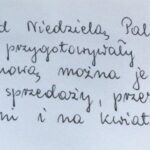 d Niedzielą Pal
przygotowywały
ową można je
sprzedaży, prze
ni i na kwiat